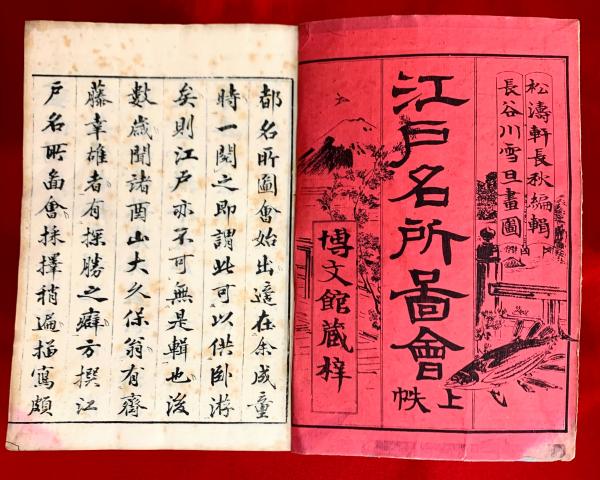 松濤軒長秋編輯
長谷川雪旦畫圖
江戸名所圖會
上帙
博文館蔵梓
都名所圖會始出適在余成童
時一閲之即謂此可以供卧游
矣則江戸亦不可無是輯也後
數歳聞諸酉山大久保翁有齋
藤幸雄者有探勝之癖方撰江
戸名所圖會採擇稍遍描寫頗